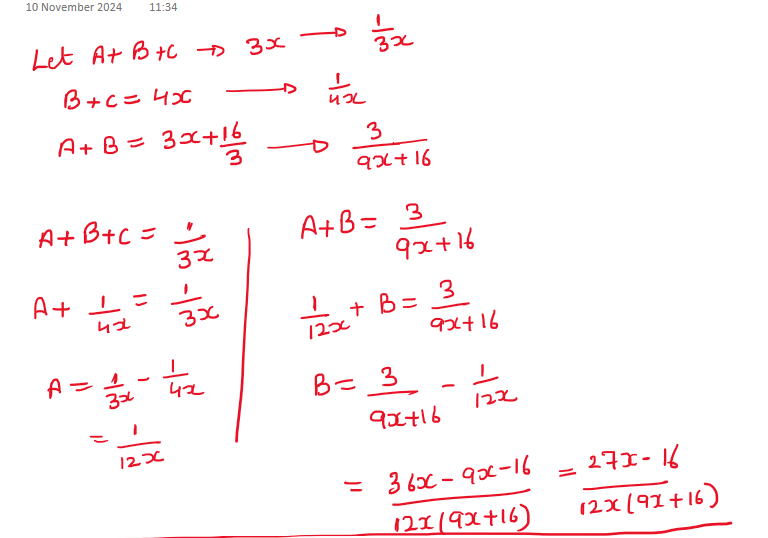 10 November 2024 11:34
Let A+ B+C → 3x → 1/3x
B+C = 4x → 1/4x
A+B = 3x+16/3 → 3/(9x+16)
A+B+C = 1/3x
A+ 1/4x = 1/3x
A = 1/3x - 1/4x
= 1/12x
A+B = 3/(9x+16)
1/12x + B = 3/(9x+16)
B = 3/(9x+16) - 1/12x
= (36x-9x-16)/(12x(9x+16)) = (27x-16)/(12x(9x+16))